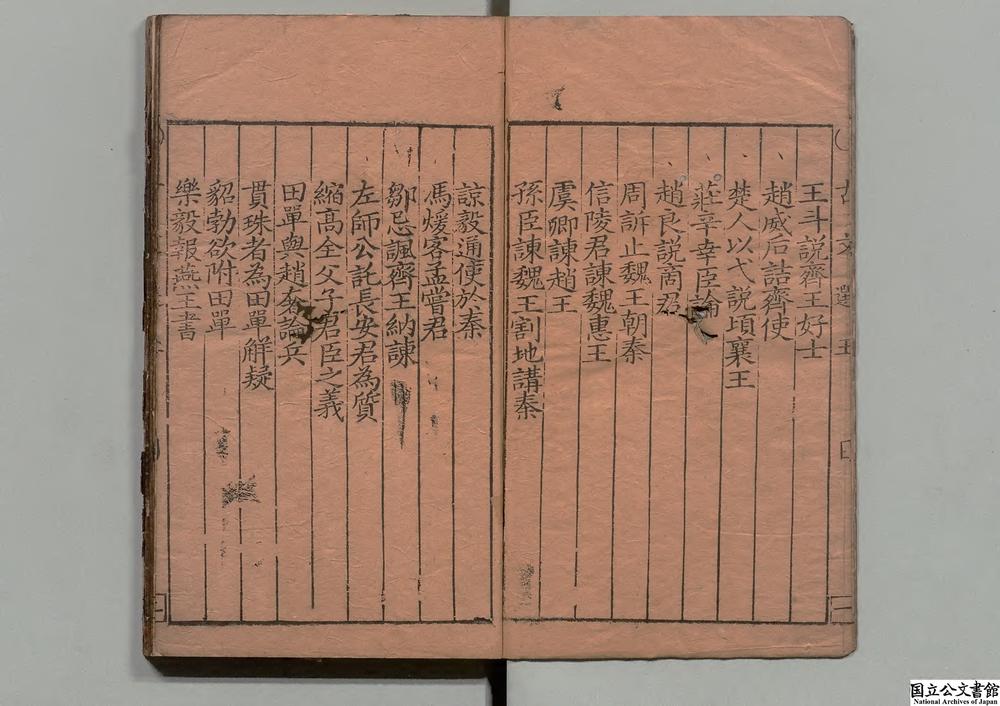 王斗説齊王好士
趙威后詰齊使
楚人以弋説項襄王
莊辛幸臣論
趙良説商君
周訴止魏王朝秦
信陵君諫魏惠王
虞卿諫趙王
孫臣諫魏王割地講秦
諒毅通使於秦
馮煖客孟嘗君
鄒忌諷齊王納諫
左師公託長安君為質
縮高全父子君臣之義
田單與趙奢論兵
貫珠者為田單解疑
貂勃欲附田單
樂毅報燕王書
国立公文書館
National Archives of Japan